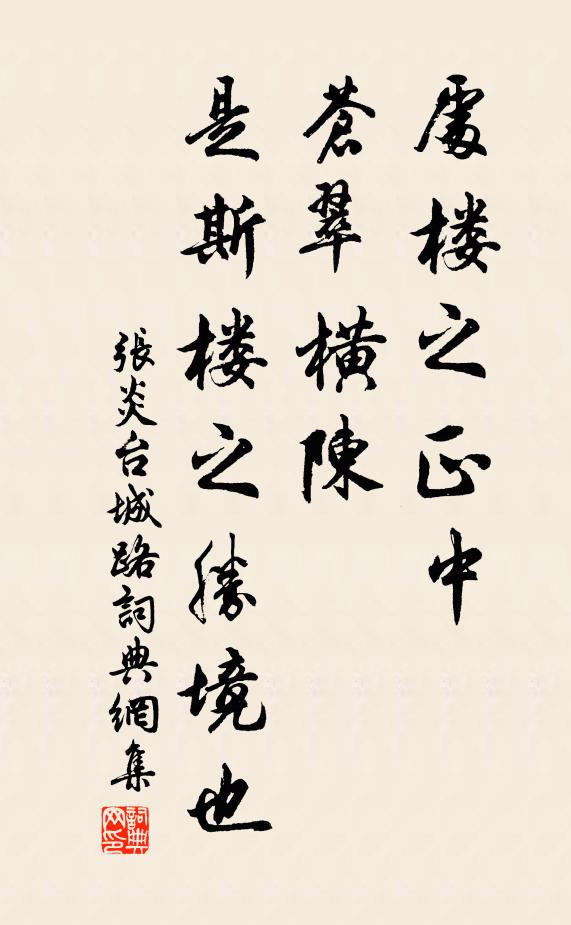 處楼之正中
蒼翠橫陳
是斯楼之勝境也
張炎台城路詞典網集
詞典网印